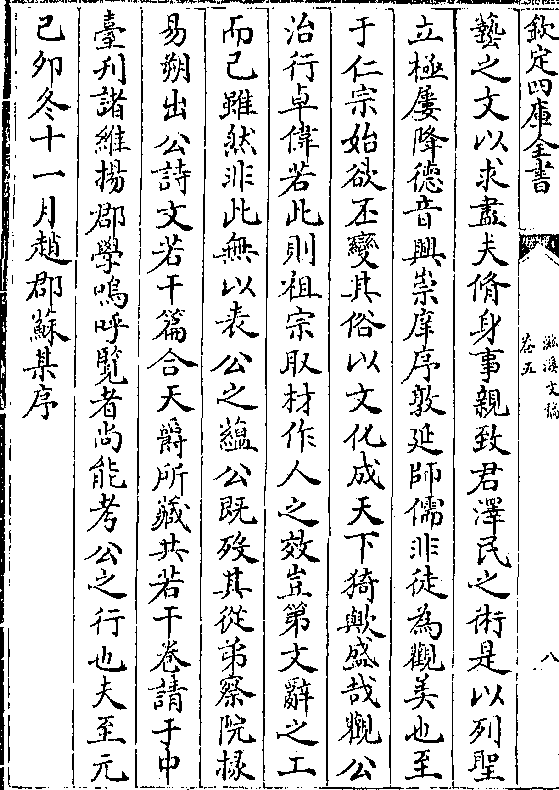 欽定四庫全書
滋溪文稿
卷五
八
藝之文以求盡夫脩身事親致君澤民之術是以列聖
立極屢降德音興崇庠序敦延師儒非徒為觀美也至
于仁宗始欲丕變其俗以文化成天下猗歟盛哉觀公
治行卓偉若此則祖宗取材作人之效豈第文辭之工
而已雖然非此無以表公之蘊公既歿其從弟察院掾
易朔出公詩文若干篇合天爵所藏共若干卷請于中
臺刋諸維揚郡學嗚呼覽者尚能考公之行也夫至元
己夘冬十一月趙郡蘇某序